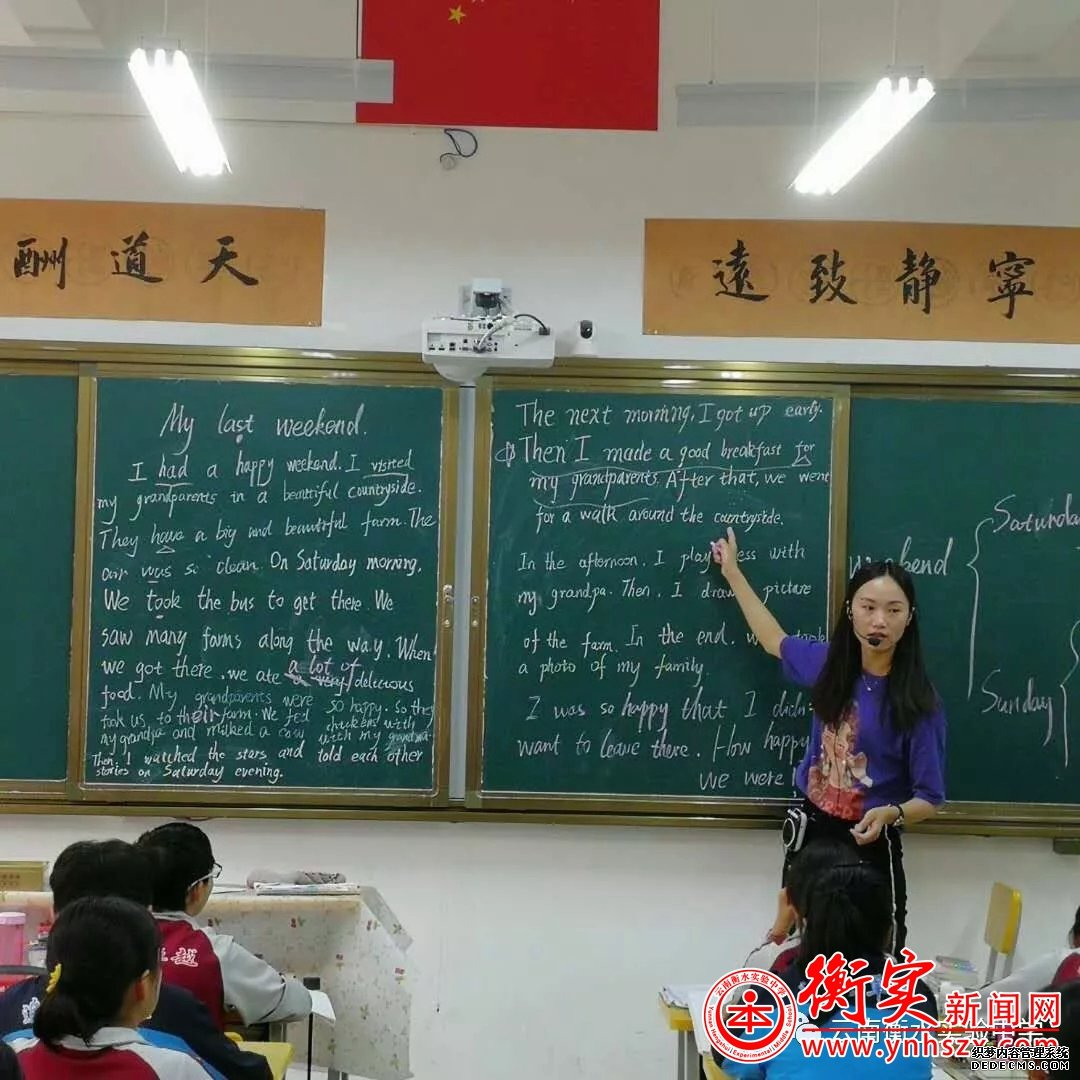 酬道天
遠致静寧
My last weekend.
I had a happy weekend. I visited
my grandparents in a beautiful countryside.
They have a big and beautiful farm. The
air was so clean. On Saturday morning,
We took the bus to get there. We
saw many farms along the way. When
we got there, we ate a lot of delicious
food. My grandparents were so happy. So they
took us to their farm. We fed chickens with
my grandpa and milked a cow with my grandma.
Then, I watched the stars and told each other
stories on Saturday evening.
The next morning, I got up early.
Then I made a good breakfast for
my grandparents. After that, we went
for a walk around the countryside.
In the afternoon, I play ess with
my grandpa. Then, I draw picture
of the farm. In the end, w took
a photo of my family.
I was so happy that I didn
want to leave there. How happy
we were!
weekend
Saturda
Sunday
越
云南衡水实验中学
Yunnan Hengshui Experimental Middle School
本
衡实新闻网
www.ynhszx.com
云南衡水实验中学
织梦内容管理系统
DEDECMS.COM